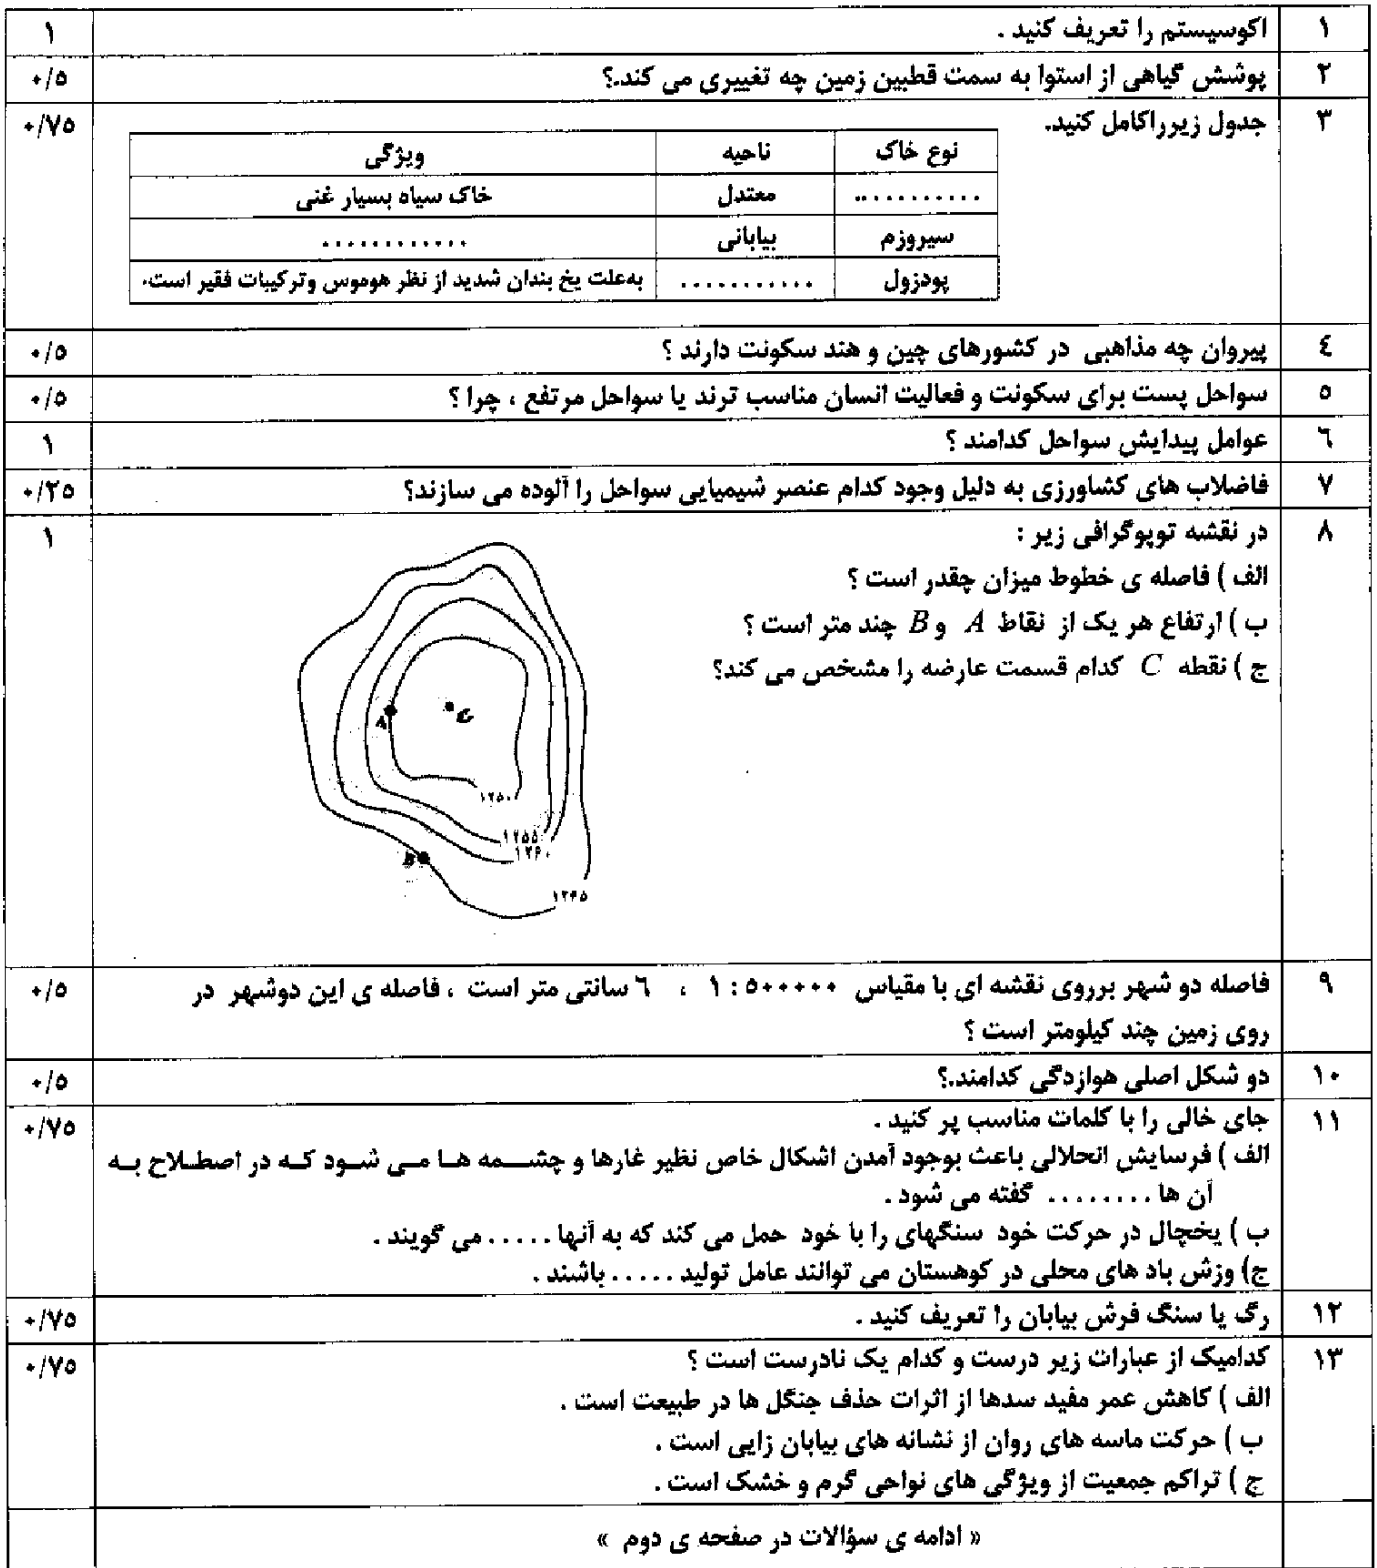 ۱ اکوسیستم را تعریف کنید . ۱
۲ پوشش گیاهی از استوا به سمت قطبین زمین چه تغییری می کند.؟ ۰/۵
۳ جدول زیرراکامل کنید. ۰/۷۵
نوع خاک ناحیه ویژگی
............ معتدل خاک سیاه بسیار غنی
سیروزم بیابانی ............
پودزول ........... به‌علت یخ بندان شدید از نظر هوموس وترکیبات فقیر است.
٤ پیروان چه مذاهبی در کشورهای چین و هند سکونت دارند ؟ ۰/۵
۵ سواحل پست برای سکونت و فعالیت انسان مناسب ترند یا سواحل مرتفع ، چرا ؟ ۰/۵
٦ عوامل پیدایش سواحل کدامند ؟ ۱
۷ فاضلاب های کشاورزی به دلیل وجود کدام عنصر شیمیایی سواحل را آلوده می سازند؟ ۰/۲۵
۸ در نقشه توپوگرافی زیر : ۱
الف ) فاصله ی خطوط میزان چقدر است ؟
ب ) ارتفاع هر یک از نقاط A و B چند متر است ؟
ج ) نقطه C کدام قسمت عارضه را مشخص می کند؟
A
C
۱۲۵۰
۱۲۵۵
۱۲۶۰
B
۱۲۶۵
۹ فاصله دو شهر برروی نقشه ای با مقیاس ۵۰۰۰۰۰ : ۱ ، ٦ سانتی متر است ، فاصله ی این دوشهر در ۰/۵
روی زمین چند کیلومتر است ؟
۱۰ دو شکل اصلی هوازدگی کدامند.؟ ۰/۵
۱۱ جای خالی را با کلمات مناسب پر کنید . ۰/۷۵
الف ) فرسایش انحلالی باعث بوجود آمدن اشکال خاص نظیر غارها و چشمه ها می شود که در اصطلاح به
آن ها ........ گفته می شود .
ب ) یخچال در حرکت خود سنگهای را با خود حمل می کند که به آنها ..... می گویند .
ج) وزش باد های محلی در کوهستان می توانند عامل تولید ..... باشند .
۱۲ رگ یا سنگ فرش بیابان را تعریف کنید . ۰/۷۵
۱۳ کدامیک از عبارات زیر درست و کدام یک نادرست است ؟ ۰/۷۵
الف ) کاهش عمر مفید سدها از اثرات حذف جنگل ها در طبیعت است .
ب ) حرکت ماسه های روان از نشانه های بیابان زایی است .
ج ) تراکم جمعیت از ویژگی های نواحی گرم و خشک است .
« ادامه ی سؤالات در صفحه ی دوم »